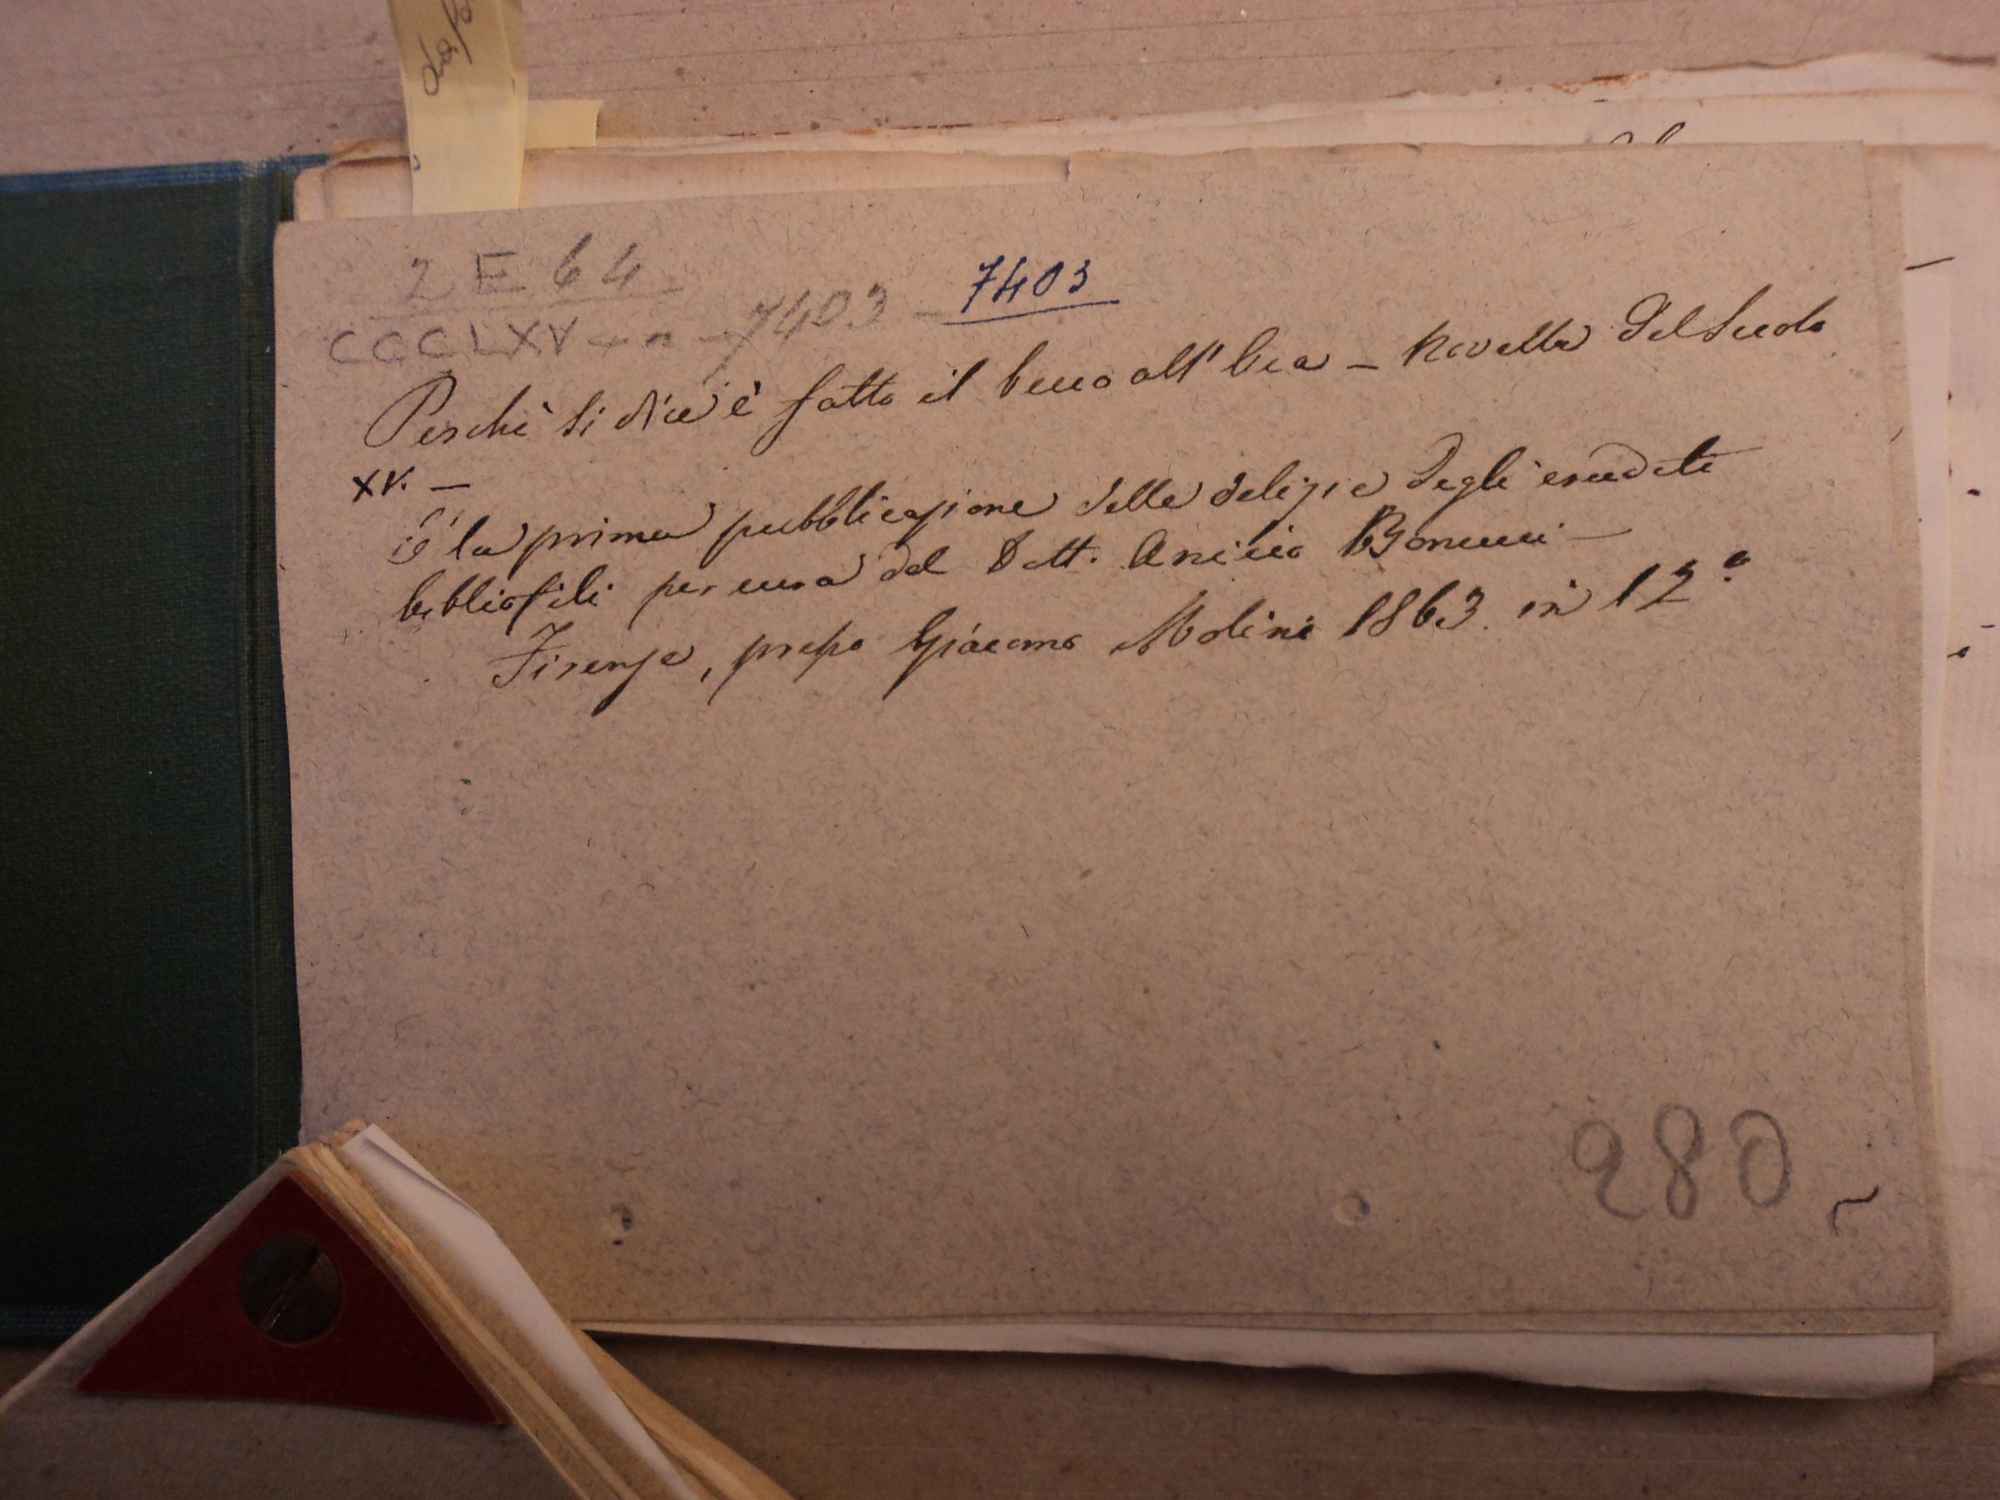 2 E 64
CCCLXV - n - 7403 - 7403
Perchè si dice è fatto il becco all'oca - Novella del Secolo
XV. -
È la prima pubblicazione delle delizie degli eruditi
bibliofili per cura del Dott. Anicio Bonucci -
Firenze, presso Giacomo Molini 1863. in 12°
280